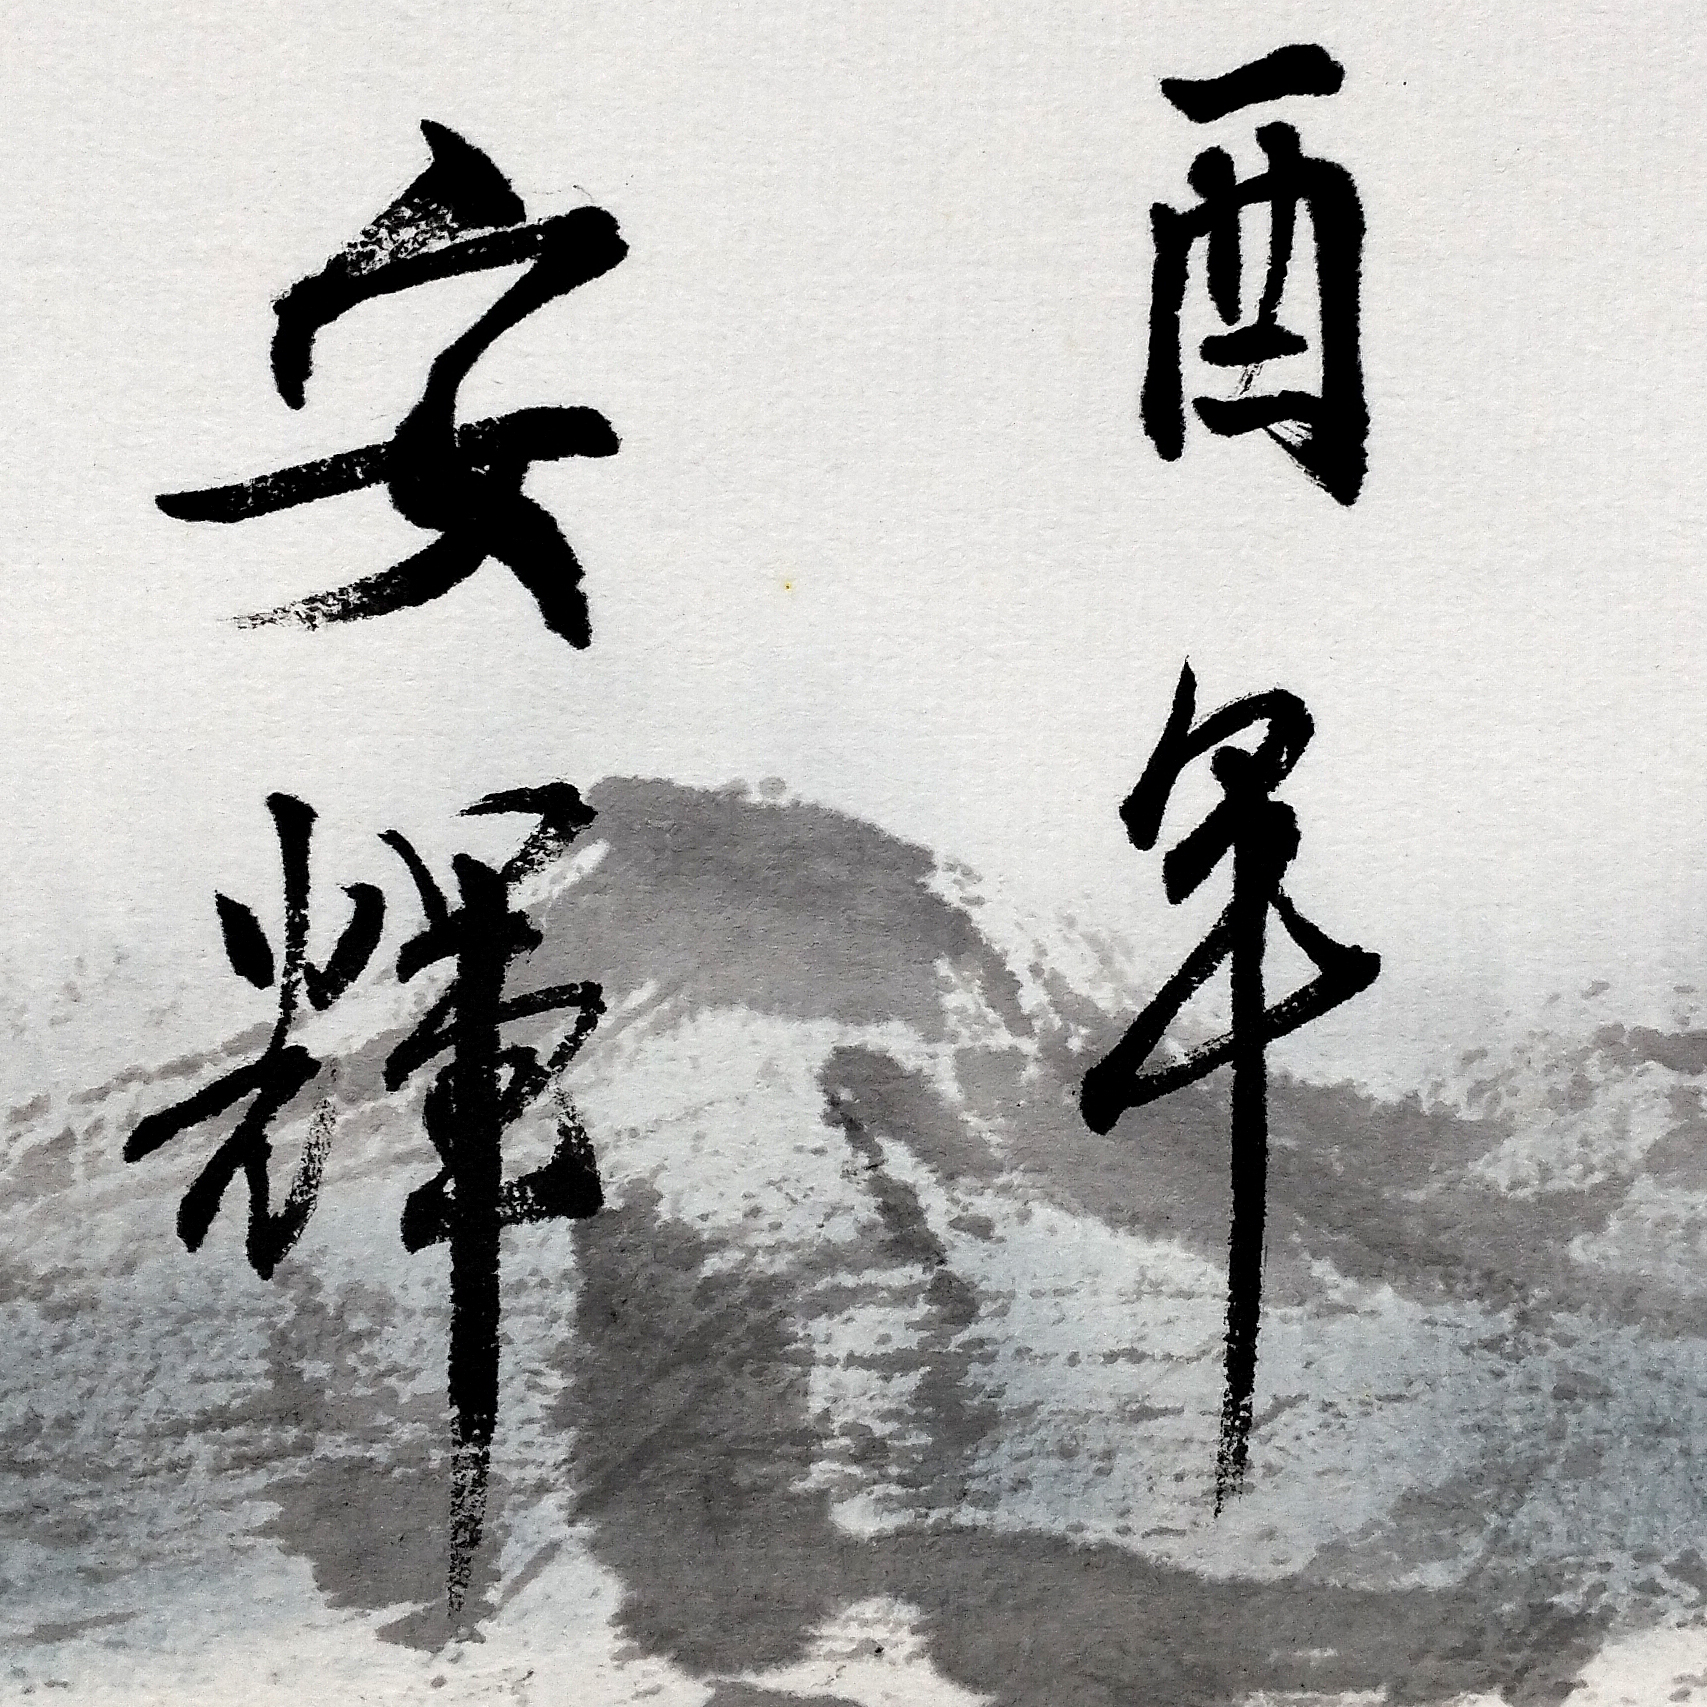 酉年
安輝